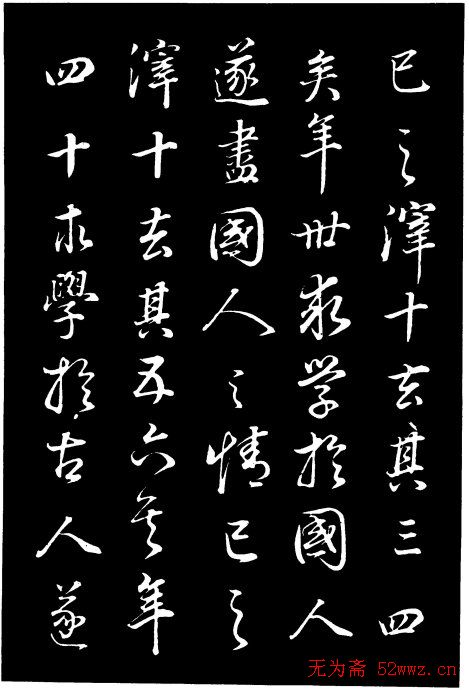 已之滓十去其三四
矣年卅求学於國人
遂盡國人之情已之
滓十去其五六矣年
四十求學於古人遂
无为斋 52wwz.cn